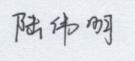 陆伟明